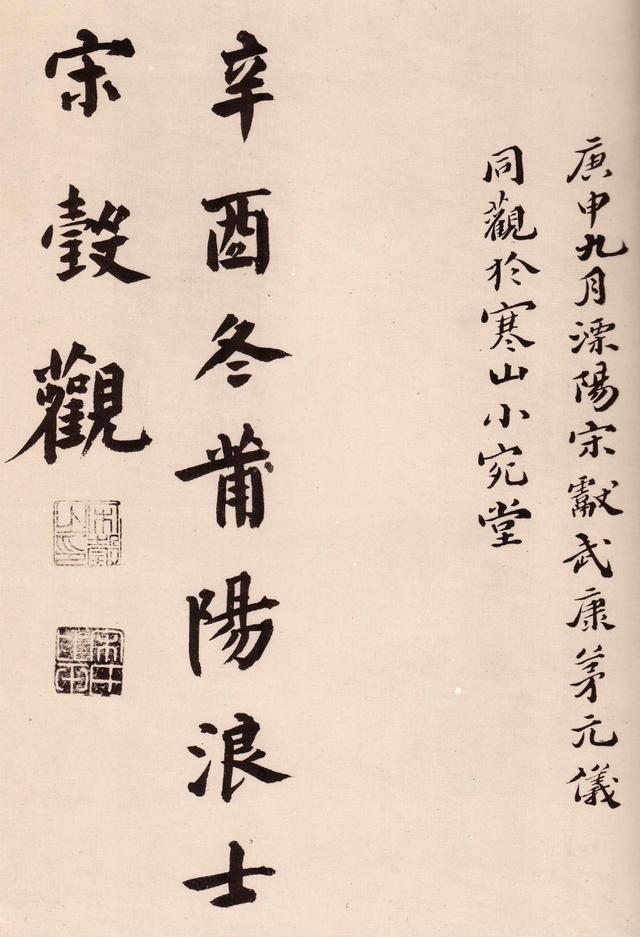 庚申九月溧陽宋獻武康茅元儀
同觀於寒山小宛堂
辛酉冬莆陽浪士
宋瑴觀